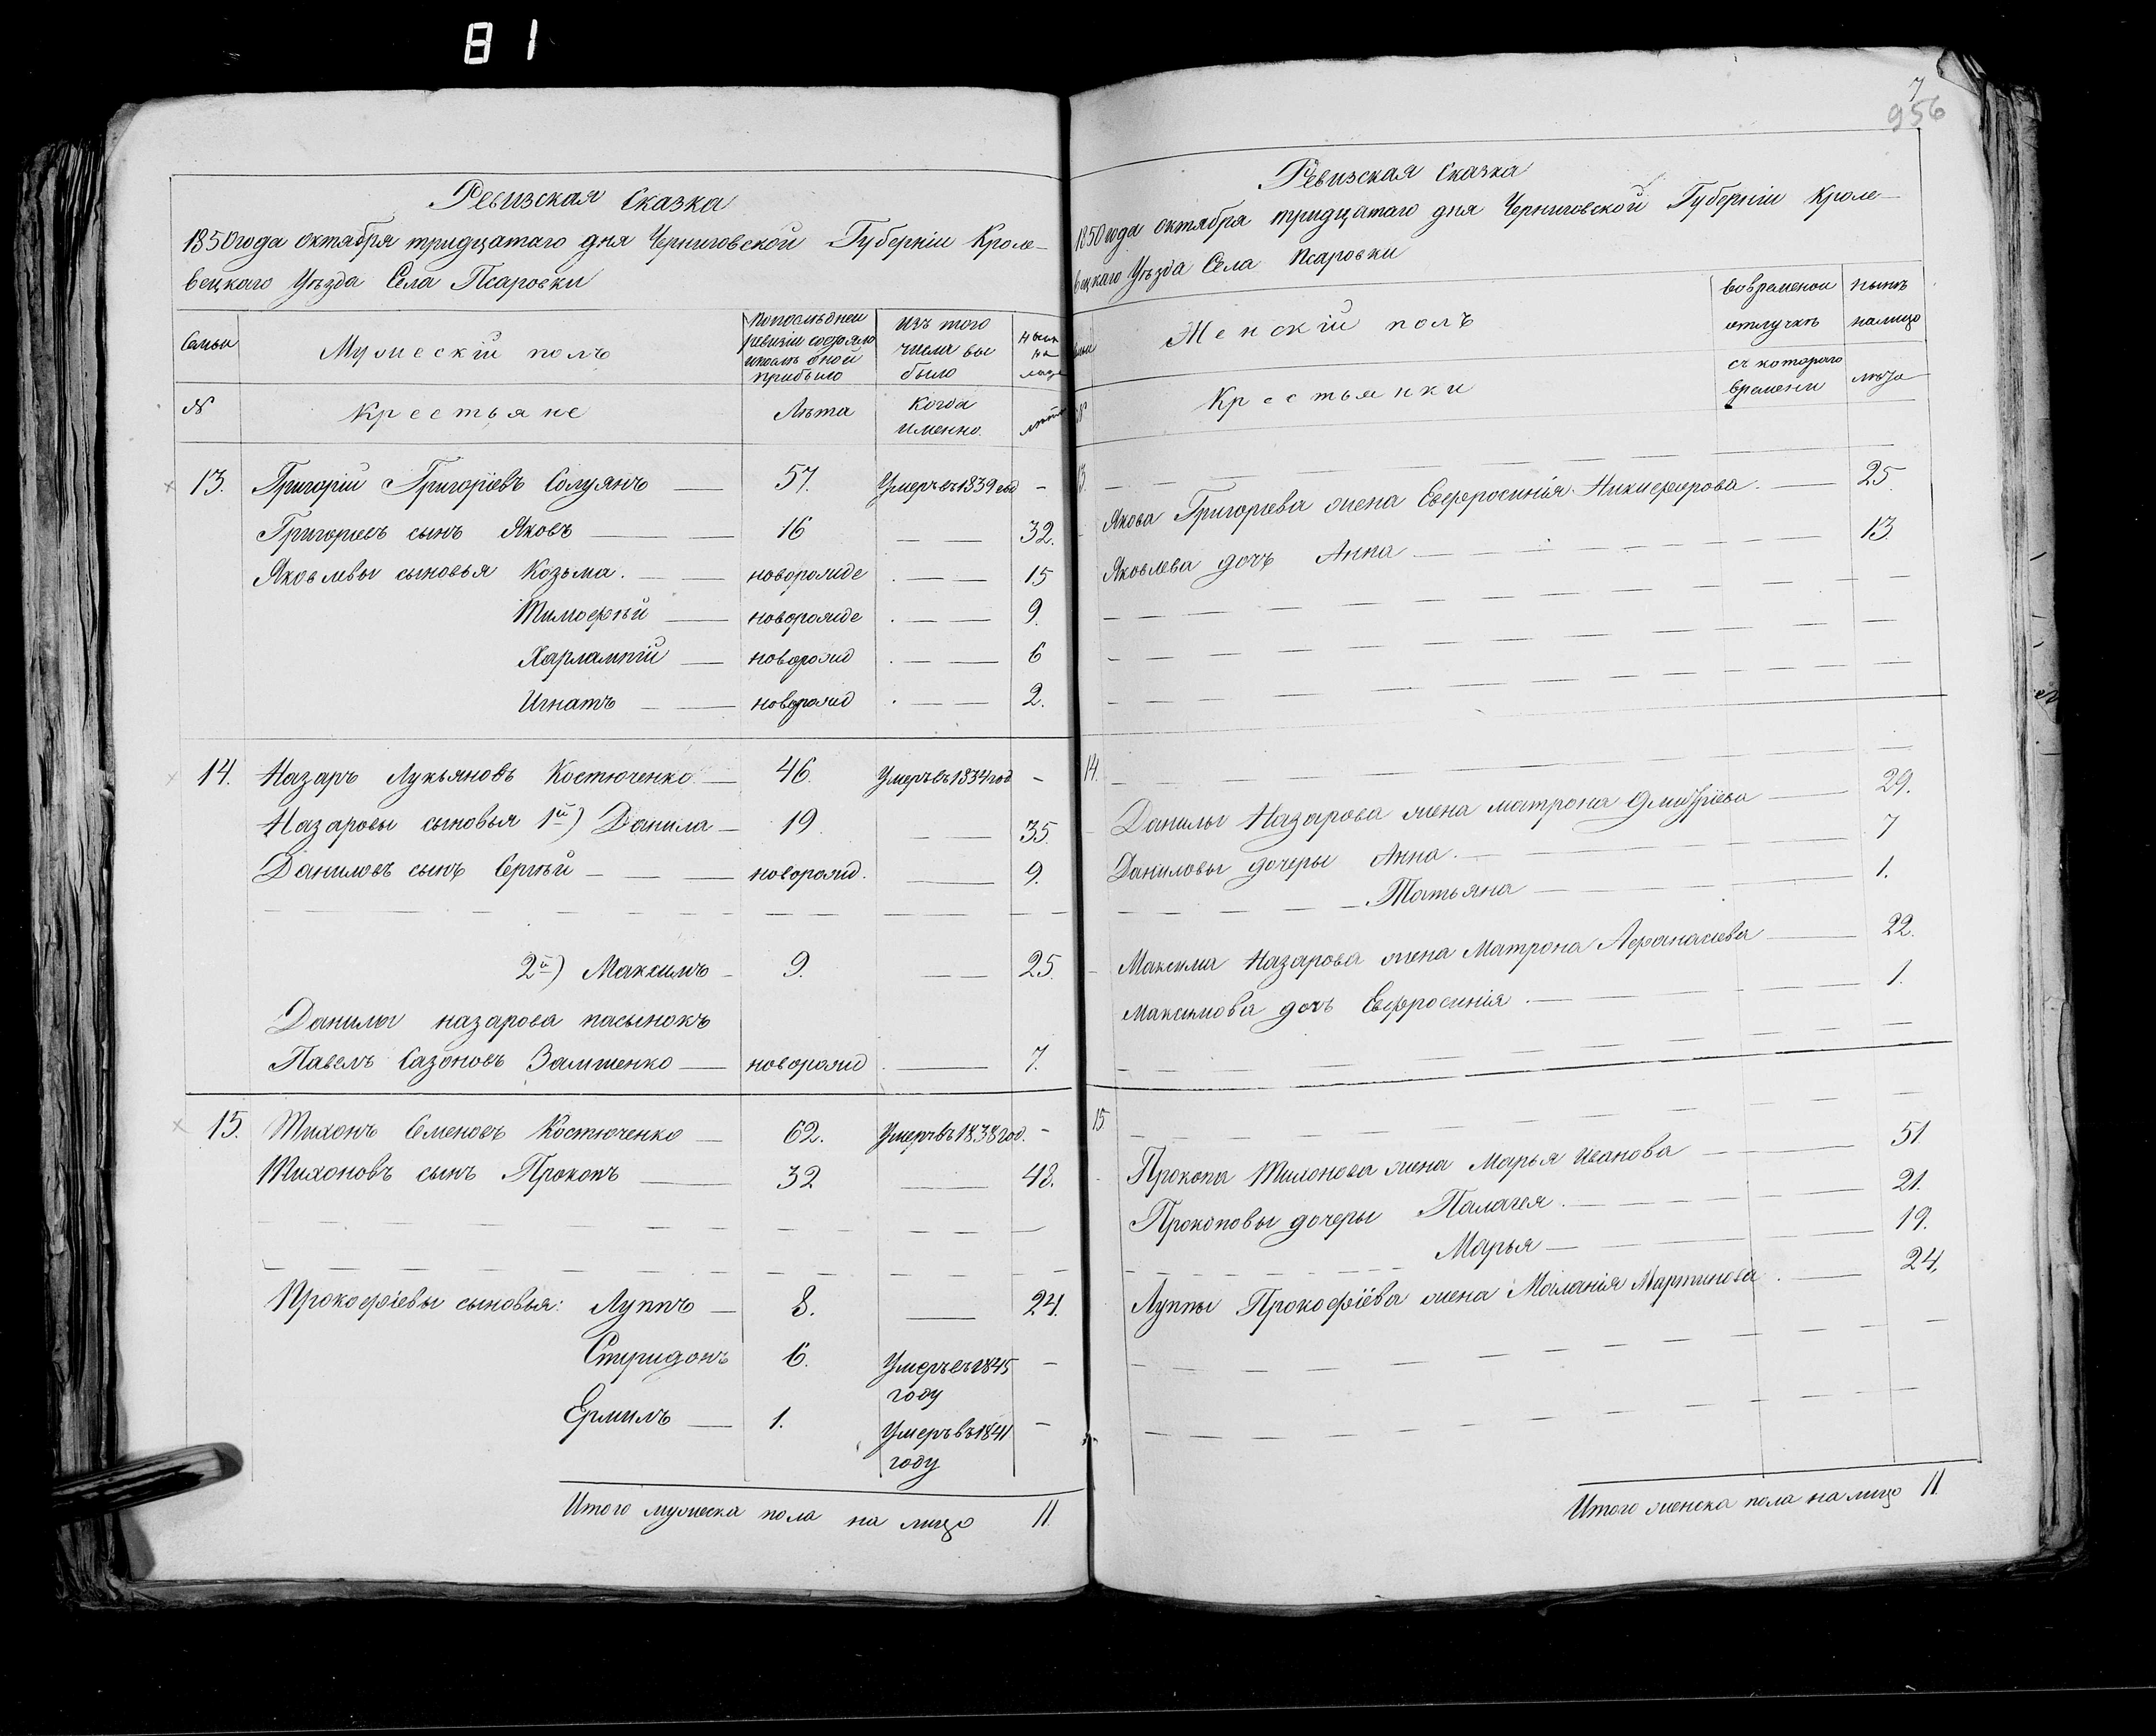 81
Ревизская Сказка
1850 года октября тридцатаго дня Черниговской Губерніи Кроле-
вецкаго Уѣзда Села Псаровки
Семьи
Мужескій полъ
По послѣдней ревизіи состояло и послѣ оной прибыло
Изъ того числа вы было
Нынѣ на лицо
№
Крестьяне
Лѣта
Когда именно.
лѣта
13. Григорій Григоріевъ Солуянъ — 57. Умеръ въ 1839 год -
Григорьевъ сынъ Яковъ — — — 16 — — 32.
Яковлевы сыновья Козьма. — — новорожде . — — 15
Тимофѣй — новорожде . — — 9.
Харлампій — новорожд . — — 6
Игнатъ — — новорожд . — — 2.
14. Назаръ Лукьяновъ Костюченко — 46. Умеръ въ 1834 год -
Назаровы сыновья 1й) Данила — 19. — 35.
Даниловъ сынъ Сергѣй — — — новорожд. — 9.
2й) Максимъ — 9. — 25.
Данилы назарова пасынокъ
Павелъ Сазоновъ Замшенко — новорожд . — 7.
15. Тихонъ Семеновъ Костюченко — 62. Умеръ въ 1838 год. -
Тихоновъ сынъ Прокопъ — 32 — 48.
Прокофіевы сыновья: Луппъ — 8. — 24.
Спиридонъ 6. Умеръ въ 1845 -
году
Ермилъ — 1. Умеръ въ 1841 -
году
Итого мужеска пола на лицо 11
7
956
Ревизская Сказка
1850 года октября тридцатаго дня Черниговской Губерніи Кроле-
вецкаго Уѣзда Села Псаровки
Семьи
Женскій полъ
Во временой отлучкѣ
нынѣ на лицо
№
Крестьянки
съ котораго времени
лѣта
13.
Якова Григорьева жена Евфросинія Никифорова. — 25.
Яковлева дочь Анна — 13.
14.
Данилы Назарова жена матрона Дмитріева — 29.
Даниловы дочеры Анна. — 7
Татьяна — 1.
Максима Назарова жена Матрона Афанасіева — 22.
Максимова дочь Евфросинія . — 1.
15.
Прокопа Тихонова жена Марья Иванова — 51.
Прокоповы дочеры Палагея. — 21.
Марья — 19.
Луппы Прокофіева жена Моланія Мартинова . — 24.
Итого женска пола на лицо 11.